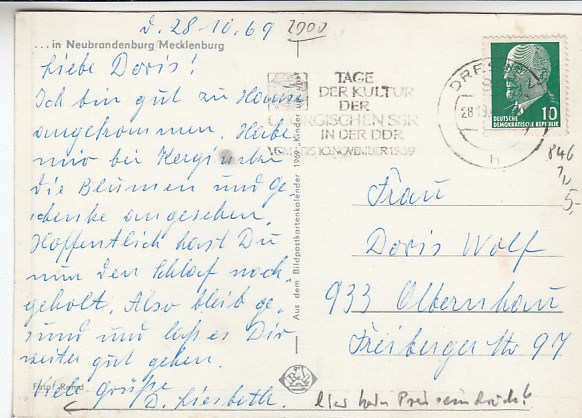 d. 28-10.69 2900
... in Neubrandenburg/Mecklenburg
Liebe Doris!
Ich bin gut zu Hause
angekommen. Habe
mir bei
die Blumen und ge-
schenke angesehen.
Hoffentlich hast Du
nun den Schlaf nach-
geholt. Also bleib ge-
sund und laß es Dir
weiter gut gehen.
Viele Grüße
D. Liesbeth.
Foto:
Aus dem Bildpostkartenkalender 1969 „Kinder
TAGE
DER KULTUR
DER
GEORGISCHEN SSR
IN DER DDR
10. NOVEMBER 1969
DRESDEN
28.10.
h
DEUTSCHE
DEMOKRATISCHE REPUBLIK
10
846
5,-
Frau
Doris Wolf
933 Olbernhau
Freiberger Str 97
hier kein Preiseindruck!